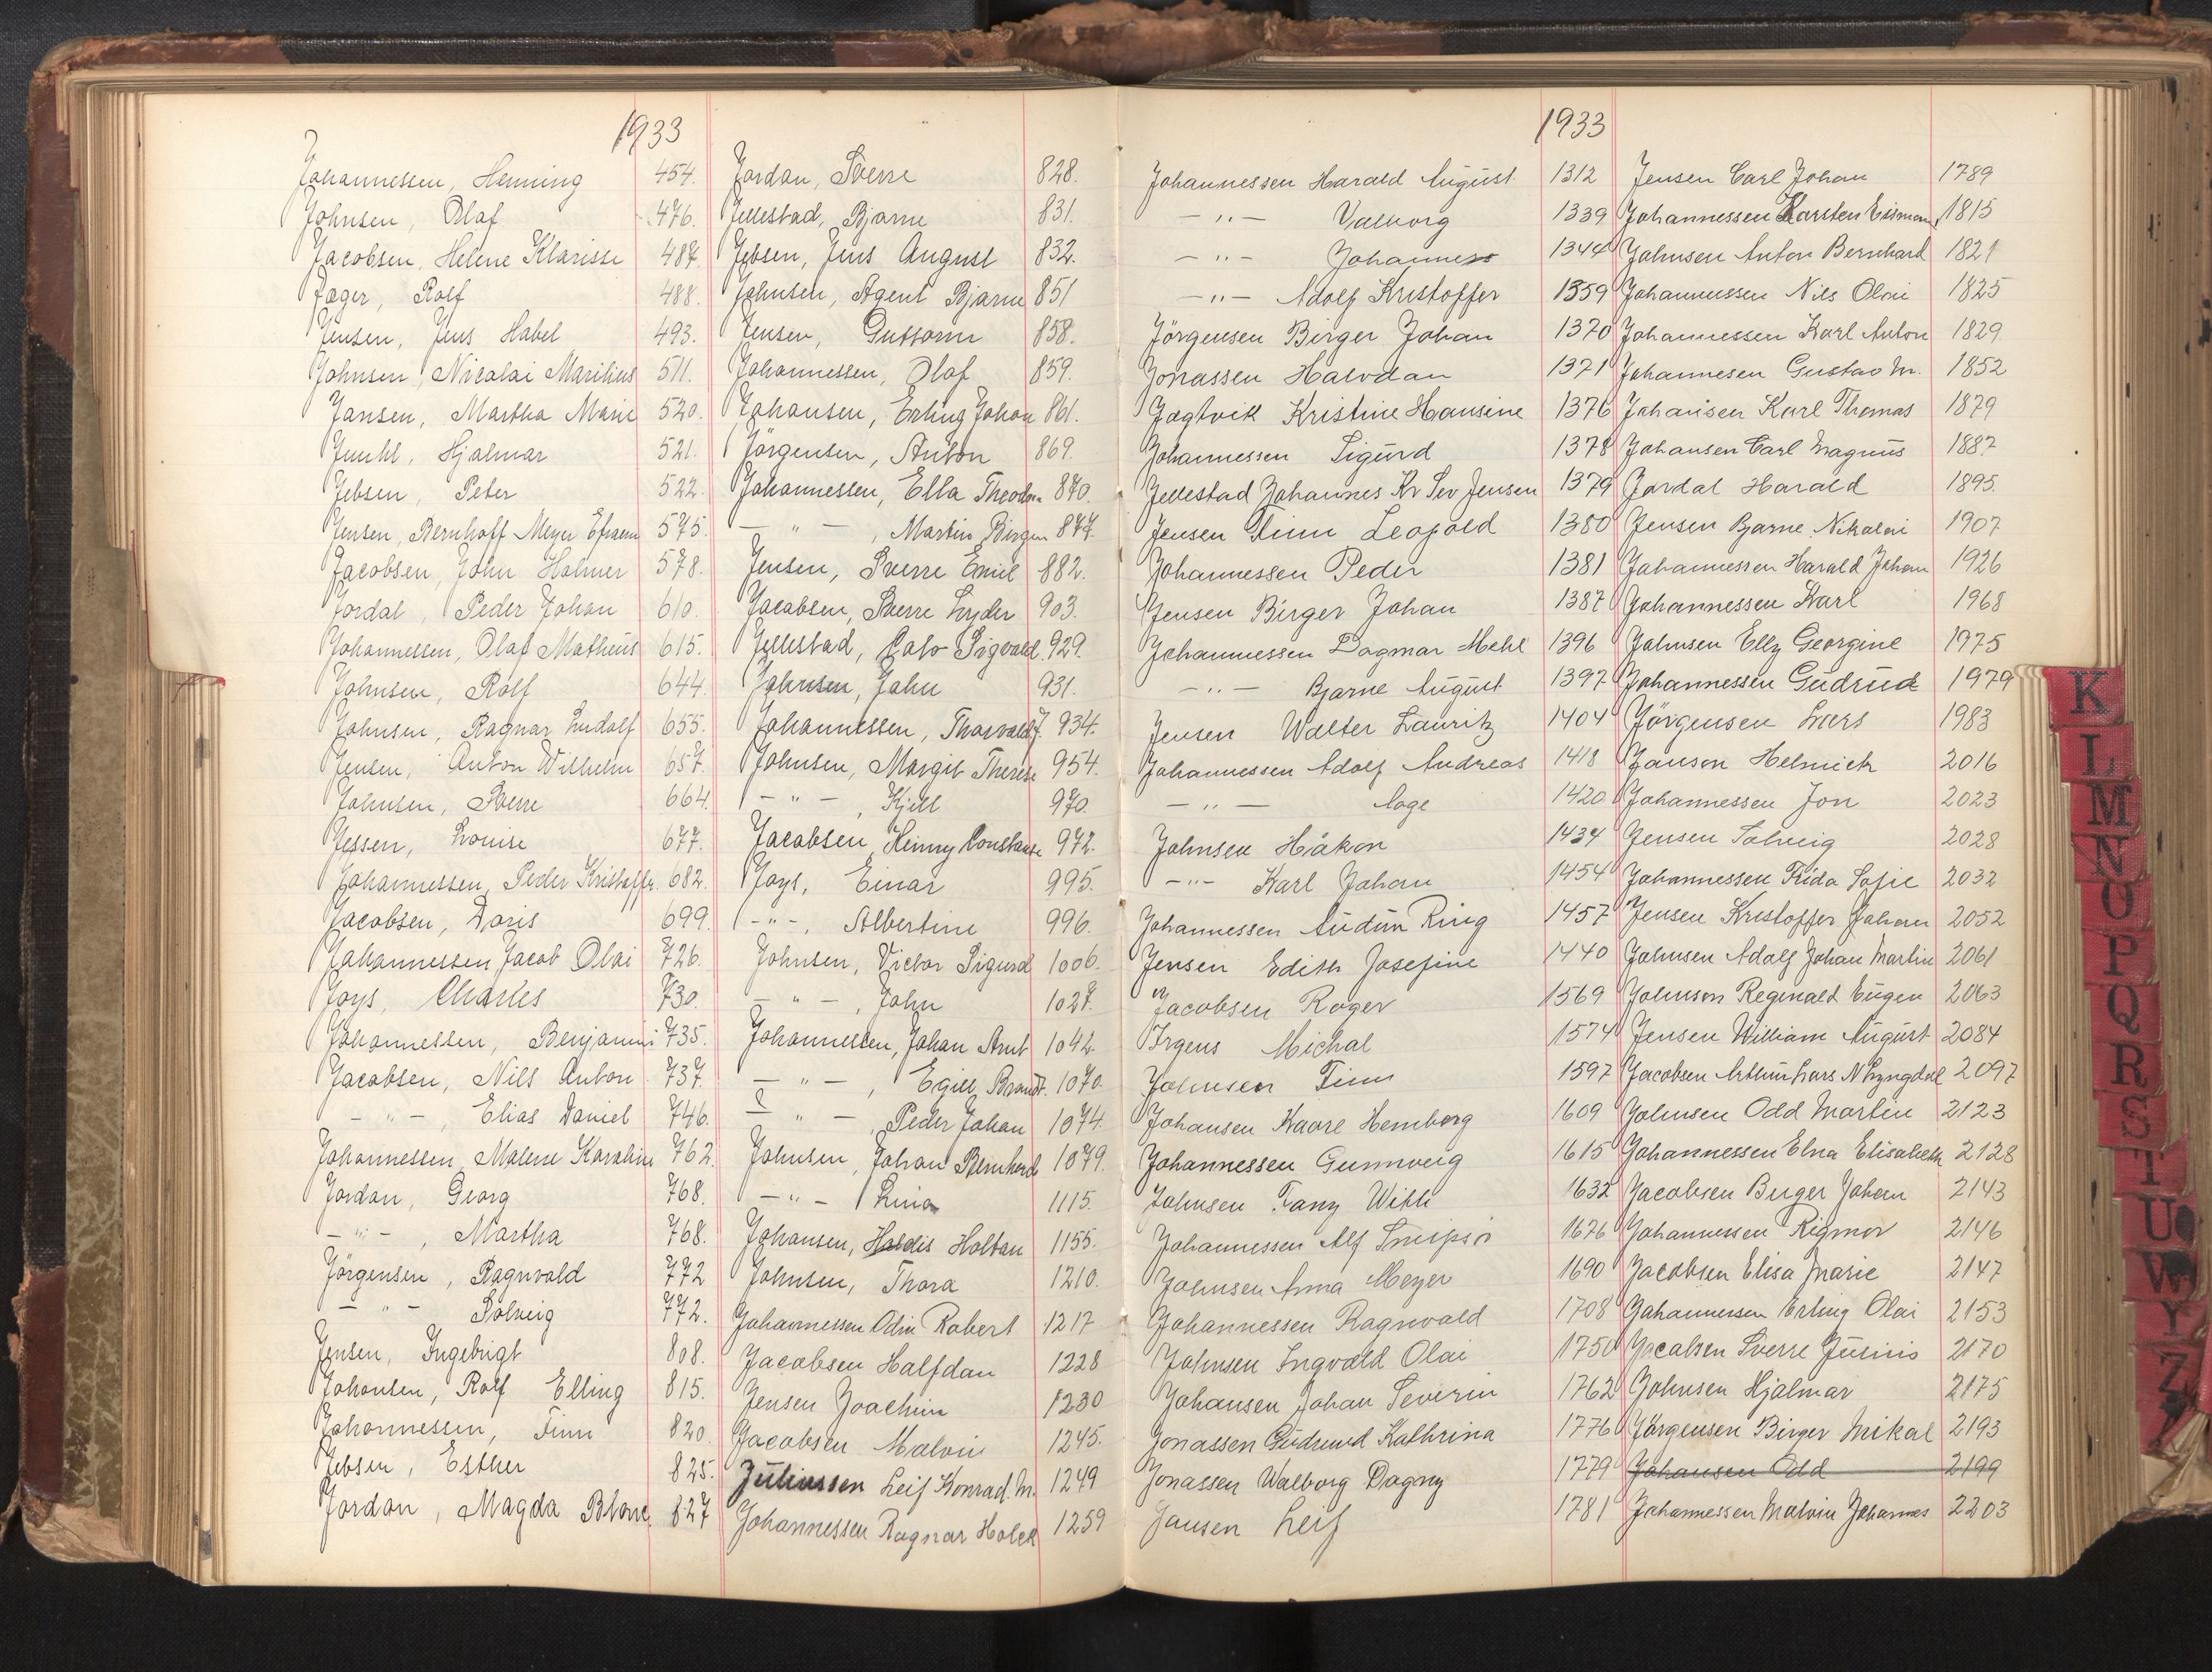 1933
Johannessen, Henning 454.
Johnsen, Olaf 476.
Jacobsen, Helene Klarisse 487.
Jæger, Rolf 488.
Jensen, Jens Habel 493.
Johnsen, Nicolai Marilius 511.
Jansen, Martha Marie 520.
Juuhl, Hjalmar 521.
Jebsen, Peter 522.
Jensen, Bernhoff Meyer Efraem 575.
Jacobsen, John Holmer 578.
Jordal, Peder Johan 610.
Johannessen, Olaf Matheus 615.
Johnsen, Rolf 644.
Johnsen, Ragnar Ludolf 655.
Jensen, Anton Wilhelm 657.
Johnsen, Sverre 664.
Jessen, Louise 677.
Johannessen, Peder Kristoffer. 682.
Jacobsen, Doris 699.
Johannessen, Jacob Olai 726.
Joys, Charles 730.
Johannessen, Benjamin 735.
Jacobsen, Nils Anton 737.
— " — , Elias Daniel 746.
Johannessen, Malene Karoline 762.
Jordan, Georg 768.
— " — , Martha 768.
Jörgensen, Ragnvald 772
— " — Solveig 772.
Jensen, Ingebrigt 808.
Johansen, Rolf Elling 815.
Johannessen, Finn 820.
Jebsen, Esther 825.
Jordan, Magda Blanc. 827
Jordan, Sverre 828.
Jellestad, Bjarne 831.
Jebsen, Jens August 832.
Johnsen, Agent Bjarne 851
Jensen, Guttorm 858.
Johannessen, Olaf 859.
Johansen, Erling Johan 861.
Jörgensen, Anton 869.
Johannessen, Ella Theodora 870.
— " — , Martin Birger 877.
Jensen, Sverre Emil 882.
Jacobsen, Sverre Lyder 903.
Jellestad, Cato Sigvald. 929.
Johnsen, John 931.
Johannessen, Thorvald J. 934.
Johnsen, Margit Therese 954.
— " — , Kjell 970.
Jacobsen, Henny Constanse 972.
Joys, Einar 995.
— " — , Albertine 996.
Johnsen, Victor Sigurd 1006.
— " — , John 1027.
Johannessen, Johan Arnt 1042.
— " — , Egill Brandt. 1070.
— " — , Peder Johan 1074.
Johnsen, Johan Bernhard 1079.
— " — Lina 1115.
Johansen, Haldis Holtan 1155.
Johnsen, Thora 1210.
Johannessen Odin Robert 1217
Jacobsen Halfdan 1228
Jensen Joachim 1230
Jacobsen Malvin 1245.
Juliussen Leif Konrad. M. 1249
Johannessen Ragnar Holck 1259
1933
Johannessen Harald August 1312
— " — Valborg 1339
— " — Johannes 1344
— " — Adolf Kristoffer 1359
Jörgensen Birger Johan 1370
Jonassen Halvdan 1371
Jægtvik Kristine Hansine 1376
Johannessen Sigurd 1378
Jellestad Johannes Kr Sev Jensen 1379
Jensen Finn Leopold 1380
Johannessen Peder 1381
Jensen Birger Johan 1387
Johannessen Dagmar Mehl 1396
— " — Bjarne August 1397
Jensen Walter Lauritz 1404
Johannessen Adolf Andreas 1418
— " — Aage 1420
Johnsen Håkon 1434
— " — Karl Johan 1454
Johannessen Audun Ring 1457
Jensen Edith Josefine 1440
Jacobsen Roger 1569
Irgens Michal 1574
Johnsen Finn 1597
Johansen Kaare Hemborg 1609
Johannessen Gunnveig 1615
Johnsen Fany Withi 1632
Johannessen Alf 1676
Johnsen Anna Meyer 1690
Johannessen Ragnvald 1708
Johnsen Ingvald Olai 1750
Johansen Johan Severin 1762
Jonassen Gudrund Kathrina 1776
Jonassen Walborg Dagny 1779
Jansen Leif 1781
Jensen Carl Johan 1789
Johannessen Karsten Esiman 1815
Johnsen Anton Bernhard 1821
Johannessen Nils Olai 1825
Johannessen Karl Anton 1829
Johannesen Gustav M. 1852
Johansen Karl Thomas 1879
Johansen Carl Magnus 1887
Jordal Harald 1895
Jensen Bjarne Nikolai 1907
Johannessen Harald Johan 1926
Johannessen Karl 1968
Johnsen Elly Georgine 1975
Johannessen Gudrud 1979
Jörgensen Lars 1983
Janson Helmich 2016
Johannessen Jon 2023
Jensen Solveig 2028
Johannessen Frida Sofie 2032
Jensen Kristoffer Johan 2052
Johnsen Adolf Johan Martin 2061
Johnson Reginald Eugen 2063
Jensen William August 2084
Jacobsen Arthur Lars N Lyngdal 2097
Johnsen Odd Martin 2123
Johannessen Elna Elisabeth 2128
Jacobsen Birger Johan 2143
Johannessen Rigmor 2146
Jacobsen Elisa Marie 2147
Johannessen Erling Olai 2153
Jacobsen Sverre Junius 2170
Johnsen Hjalmar 2175
Jörgensen Birger Mikal 2193
Johansen Odd 2199
Johannessen Malvin Johannes 2203
K
L
M
N
O
P
Q
R
S
T
U
W
Y
Z